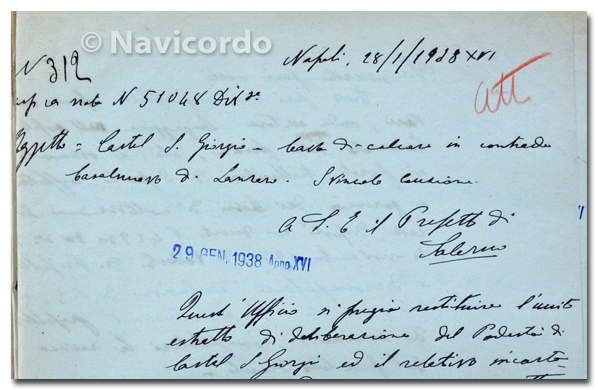 © Navicordo
N 312
Napoli, 28/1/1938 XVI
att
nota N 51048 Div 2a
Oggetto = Castel S. Giorgio - Cava di calcare in contrada
Casalnuovo di Lanzara. Svincolo cauzione.
A S. E il Prefetto di
Salerno
29 GEN. 1938 Anno XVI
Quest'Ufficio si pregia restituire l'unito
estratto di deliberazione del Podestà di
Castel S Giorgio ed il relativo incarto